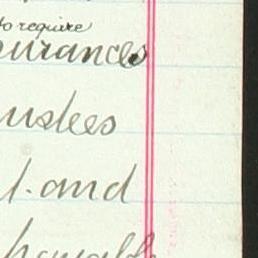 to require
urances
ustees
l. and
payable